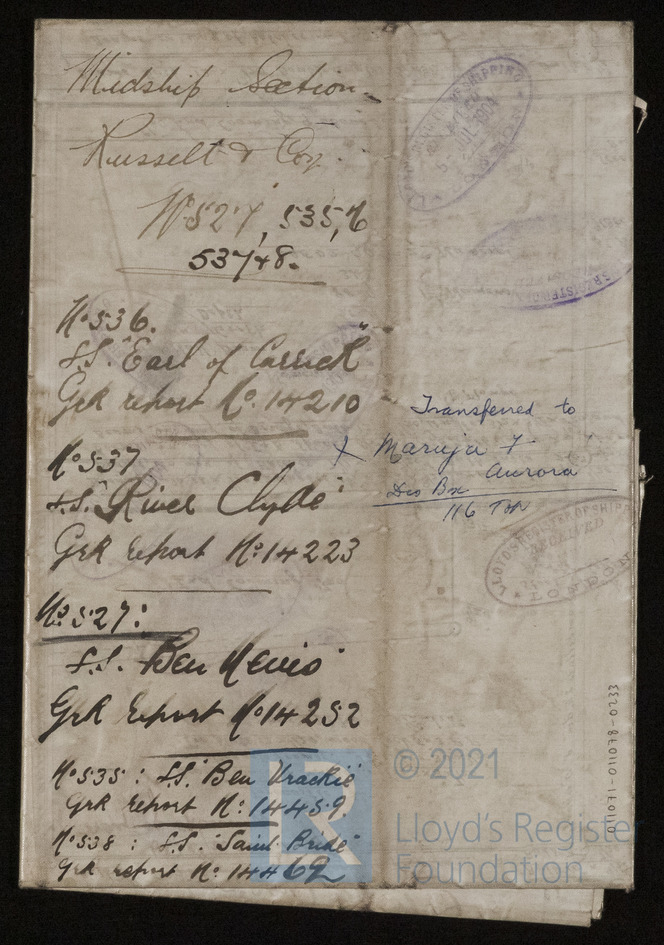 Midship Section
Russell & Coy.
No 527, 535, 6
537 & 8.
No 536.
S.S. "Earl of Carrick"
Grk report No. 14210
No 537
S.S. "River Clyde"
Grk report No. 14223
No. 527:
S.S. "Ben Nevis"
Grk report No. 14252
No 535: S.S. "Ben Vrackie"
Grk report No: 14459.
No 538: S.S. "Saint Bride"
Grk report No: 14462
Transferred to
X Maruja 7
Aurora
Box
116
LLOYD'S REGISTER OF SHIPPING
RECEIVED
LONDON
0110711-011078-0233
© 2021
Lloyd's Register
Foundation